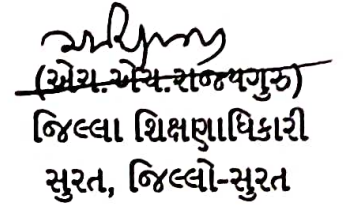 (એચ.એચ.રાજ્યગુરુ)
જિલ્લા શિક્ષણાધિકારી
સુરત, જિલ્લો-સુરત